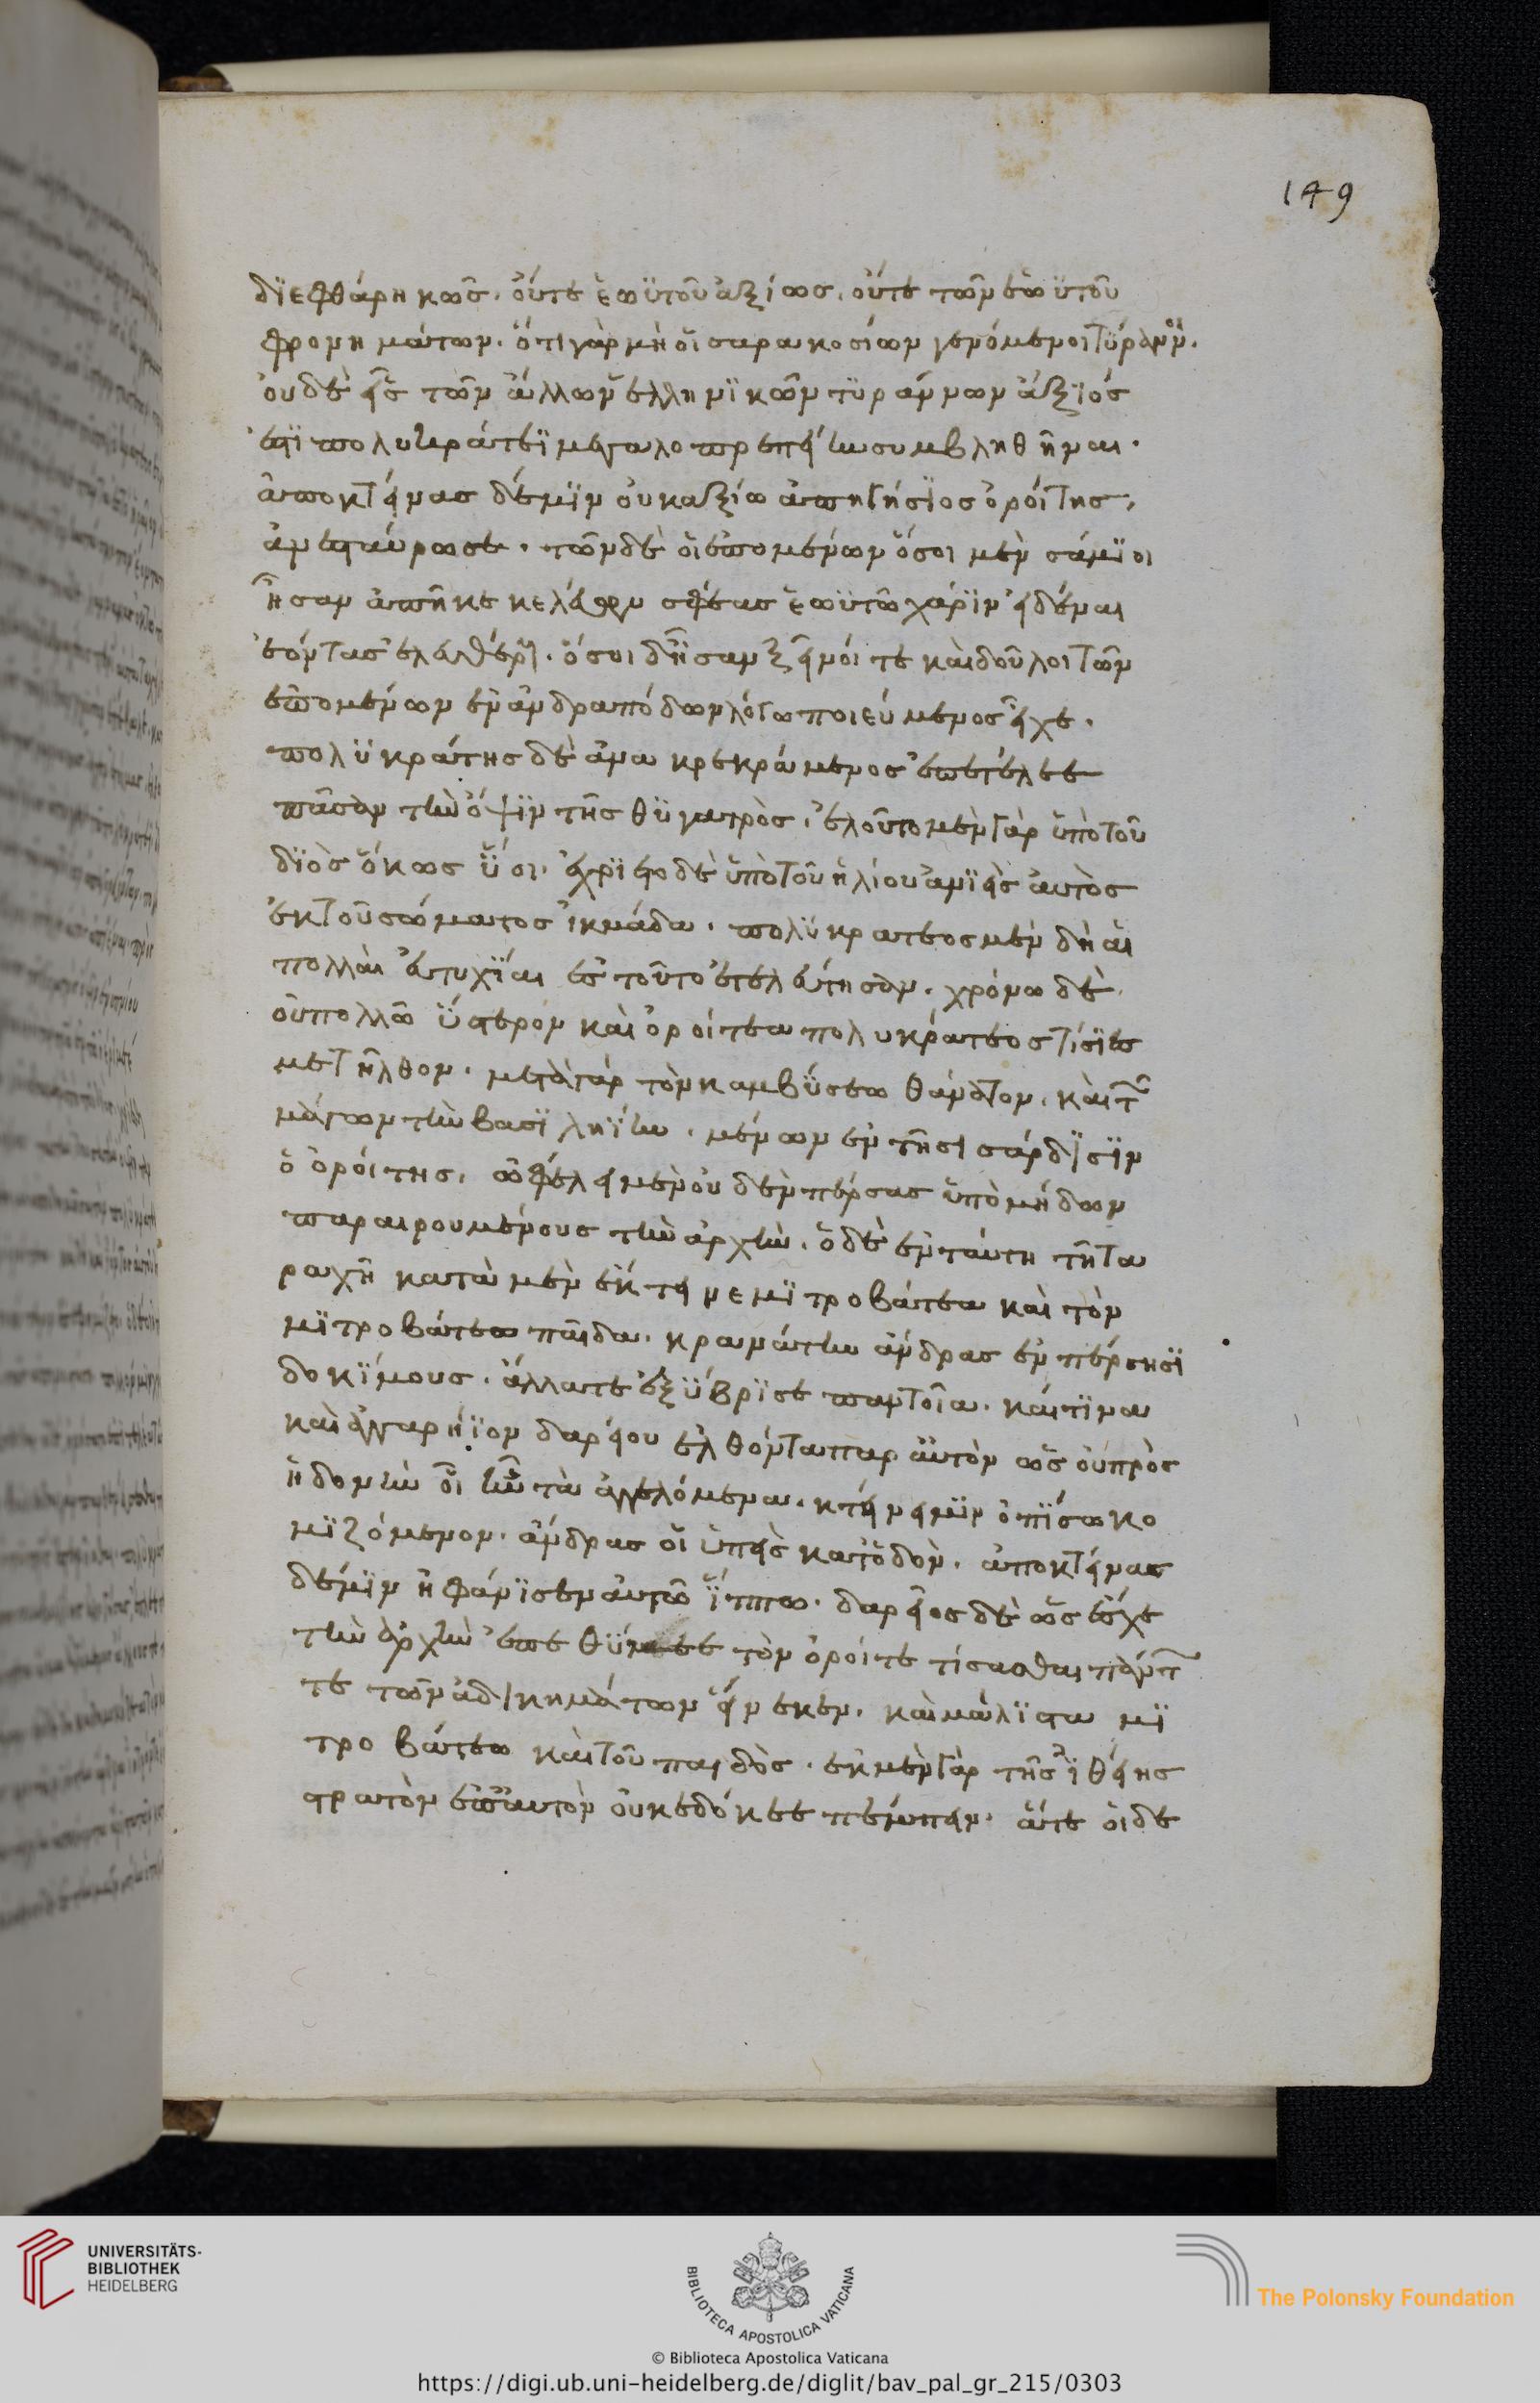 149
διεφθάρη κῶς. οὔτε ἑωϋτοῦ ἀξίως. οὔτε τῶν ἑωϋτοῦ
φρονημάτων. ὅτι γὰρ μὴ οἱ συρακοσίων γενόμενοι τύραννοι.
οὐδὲ εἷς τῶν ἄλλων ἑλληνϊκῶν τϋράννων ἄξϊός
ἐστϊ πολυκράτεϊ μεγαλοπρεπείην συμβληθῆναι.
ἀποκτείνας δέ μϊν οὐκ ἀξίω ἀπηγήσϊος ὀροίτης,
ἀνεσταύρωσε. τῶν δὲ οἱ ἑπομένων ὅσοι μὲν σάμϊοι
ἦσαν ἀπῆκε κελεύων σφέας ἑωϋτῶ χάρϊν εἰδέναι
ἐόντας ἐλευθέρους. ὅσοι δὲ ἦσαν ξεῖνοί τε καὶ δοῦλοι τῶν
ἑπομένων ἐν ἀνδραπόδων λόγω ποιεύμενος εἶχε.
πολϋκράτης δὲ ἀνακρεκράμενος ἐπετέλεε
πᾶσαν τὴν ὄψϊν τῆς θϋγατρὸς. ἐλοῦτο μὲν γὰρ ὑπὸ τοῦ
δϊὸς ὅκως ὕοι. ἐχρίετο δὲ ὑπὸ τοῦ ἡλίου ἀνϊεὶς αὐτὸς
ἐκ τοῦ σώματος ἰκμάδα. πολϋκρατεος μὲν δὴ αἱ
πολλαὶ εὐτυχΐαι ἐς τοῦτο ἐτελεύτησαν. χρόνω δὲ
οὐ πολλῶ ὕστερον καὶ ὀροίτεα πολυκράτεος τίσϊες
μετῆλθον. μετὰ γὰρ τὸν καμβύσεω θάνατον. καὶ τῶν
μάγων τὴν βασϊληΐην. μένων ἐν τῆσι σάρδϊσϊν
ὁ ὀροίτης. ὠφέλει μὲν οὐδὲν πέρσας ὑπὸ μήδων
παραιρουμένους τὴν ἀρχὴν. ὁ δὲ ἐν ταύτη τῆ τα
ραχῆ κατὰ μὲν ἔκτεινε μϊτροβάτεα καὶ τὸν
μϊτροβάτεω παῖδα. κραναάτην ἄνδρας ἐν πέρσησϊ
δοκΐμους. ἄλλα τε ἐξύβρϊσε παντοῖα. καὶ τϊνα
καὶ ἀγγαρήϊον δαρείου ἐλθόντα παρ αὐτὸν ὡς οὐ πρὸς
ἡδονὴν οἱ ἦν τὰ ἀγγελόμενα. κτείνει μϊν ὀπΐσω κο
μϊζόμενον. ἄνδρας οἱ ὑπεὶς κατ ὁδὸν. ἀποκτείνας
δέ μϊν ἠφάνϊσεν αὐτῶ ἵππω. δαρεῖος δὲ ὡς ἔσχε
τὴν ἀρχὴν ἐπεθύμεε τὸν ὀροίτε τίσασθαι πάντων
τε τῶν ἀδικημάτων εἵνεκεν. καὶ μάλϊστα μϊ
τροβάτεω καὶ τοῦ παιδὸς. ἐκ μὲν γὰρ τῆς ἰθείης
στρατὸν ἐπ αὐτὸν οὐκ ἐδόκεε πέμπειν. ἅτε οἰδε
UNIVERSITÄTS-
BIBLIOTHEK
HEIDELBERG
BIBLIOTECA APOSTOLICA VATICANA
The Polonsky Foundation
© Biblioteca Apostolica Vaticana
https://digi.ub.uni-heidelberg.de/diglit/bav_pal_gr_215/0303